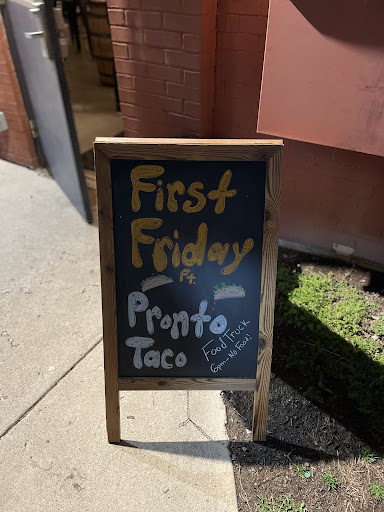 First
Friday
Ft.
Pronto
Taco
Food Truck
6pm-No Food!